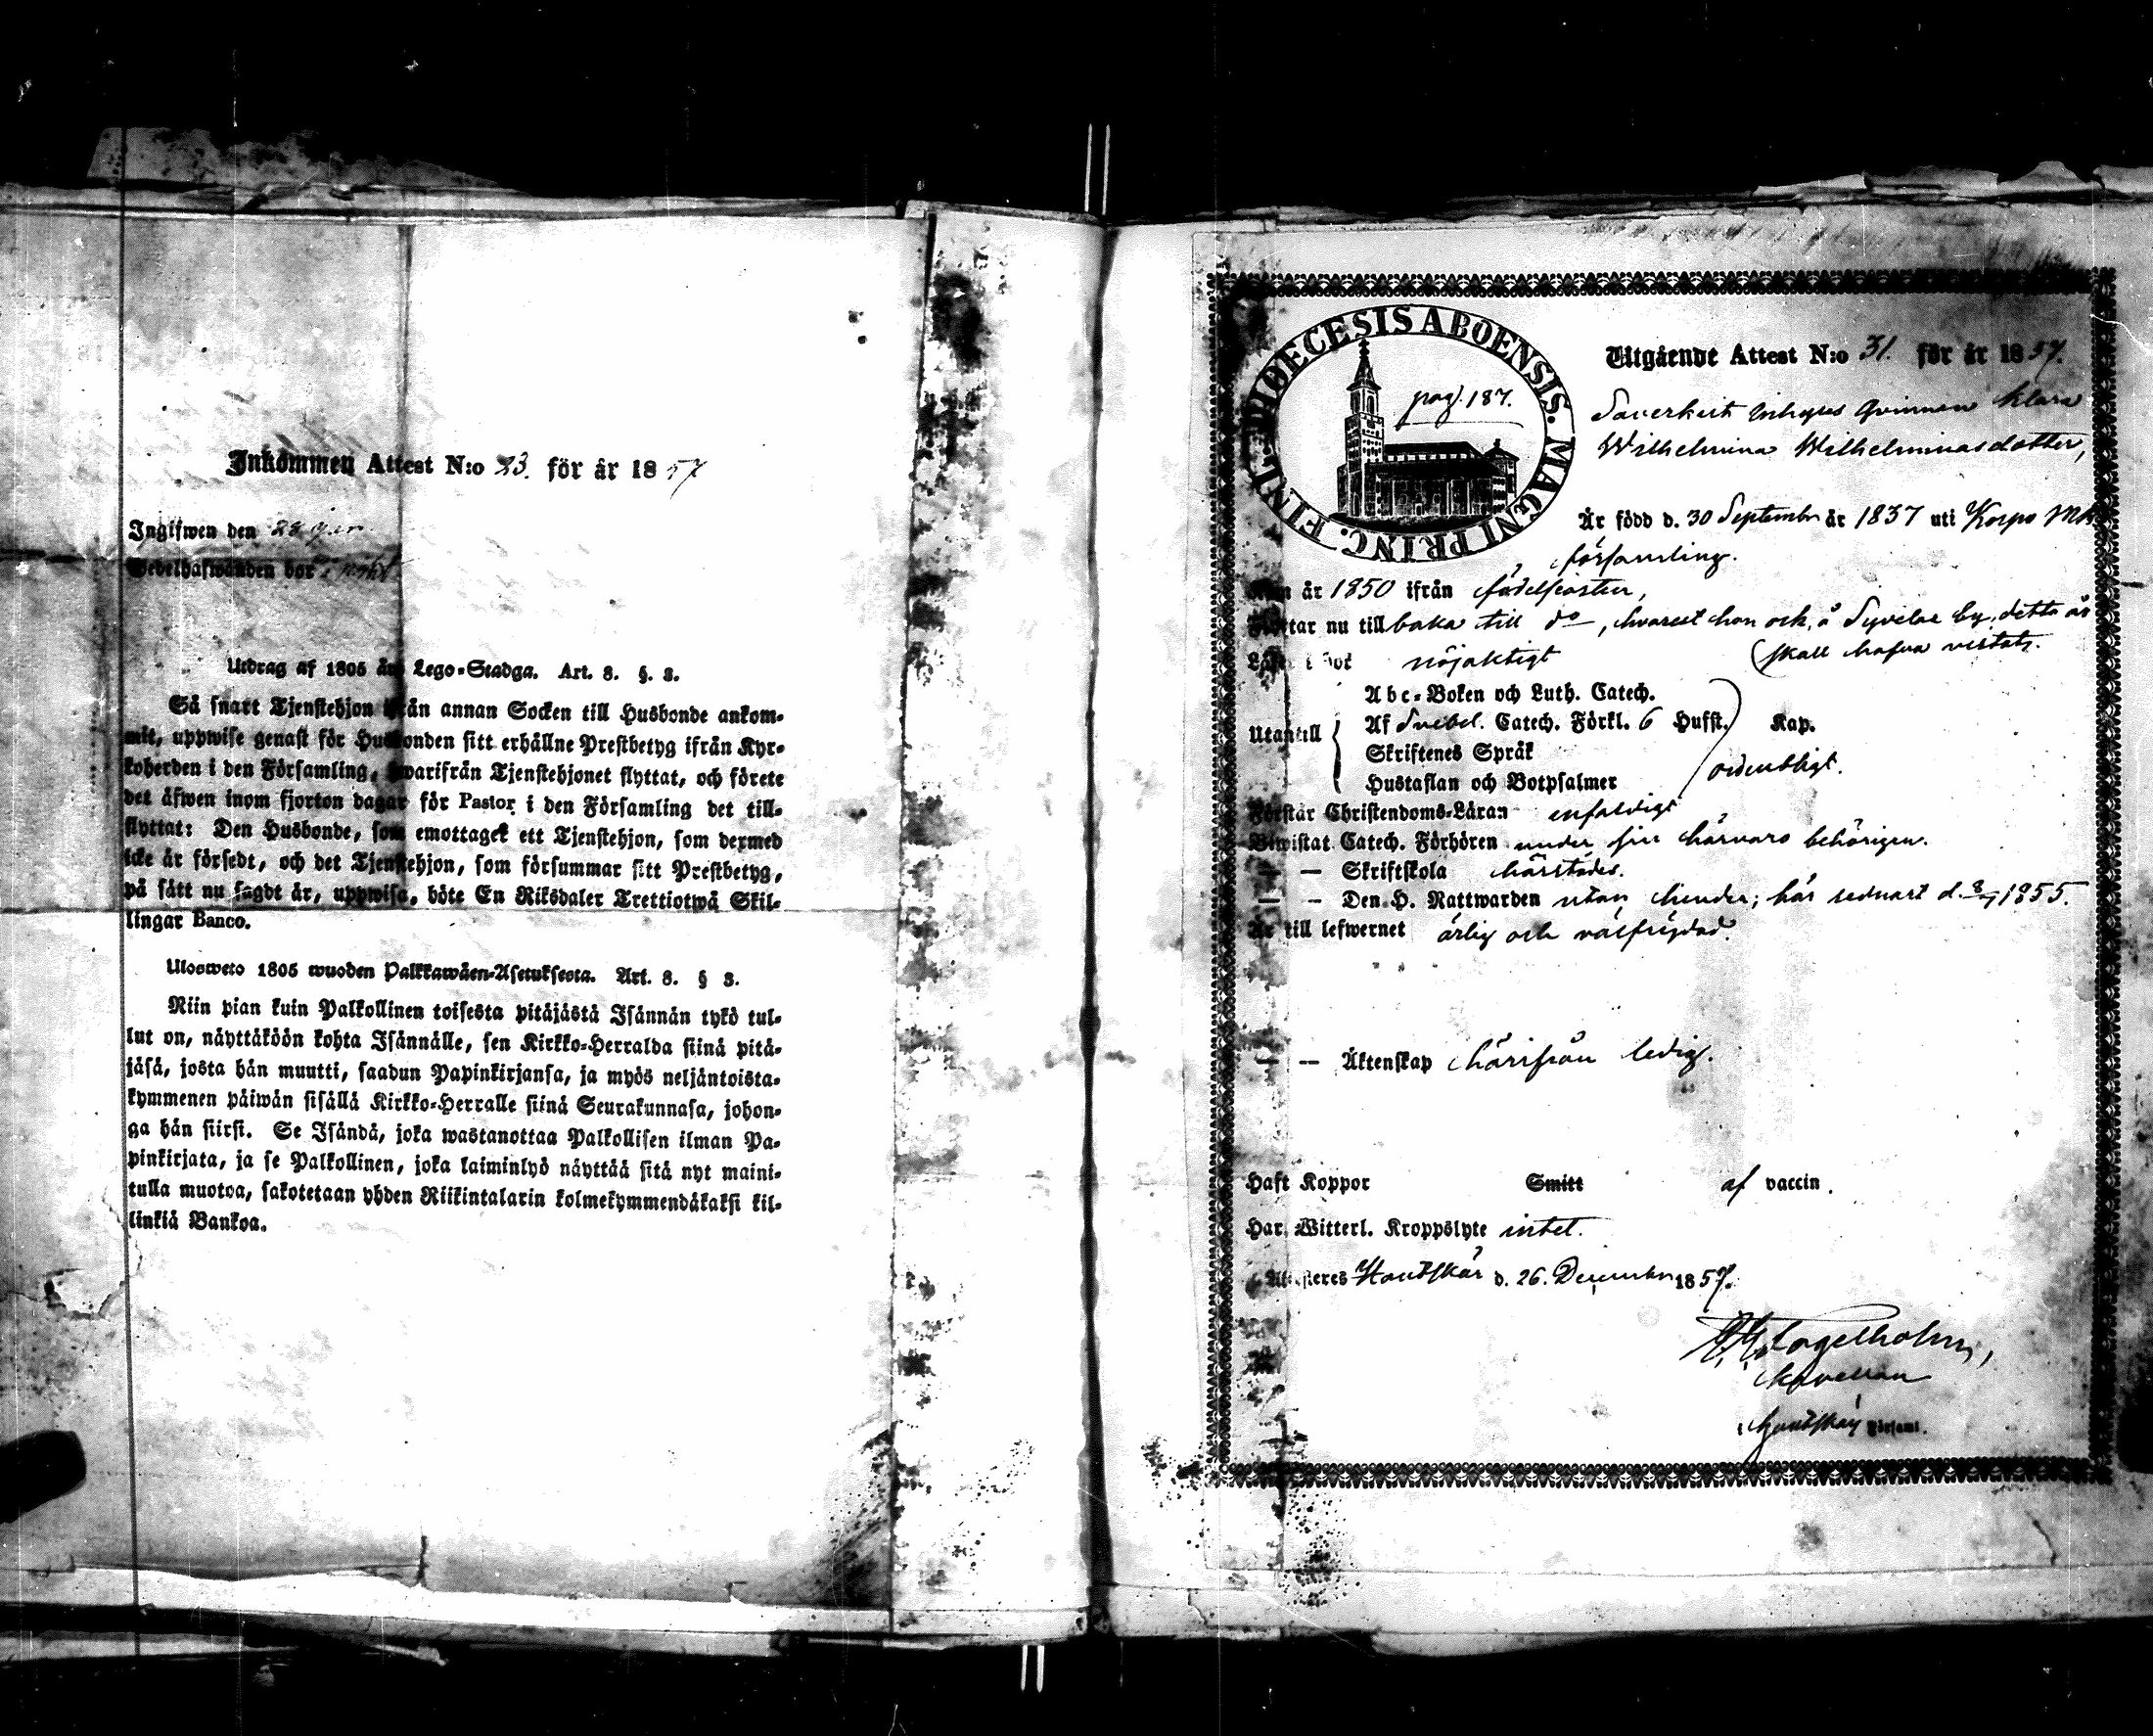 Inkommen Attest N:o 23. för år 1857
Ingifwen den 28
Utdrag af 1805 års Lego-Stadga. Art. 8. §. 3.
Så snart Tjenstehjon ifrån annan Socken till Husbonde ankom-
mit, uppwise genast för Husbonden sitt erhållne Prestbetyg ifrån Kyr-
koherden i den Församling, hwarifrån Tjenstehjonet flyttat, och förete
det äfwen inom fjorton dagar för Pastor i den Församling det till-
flyttat: Den Husbonde, som emottager ett Tjenstehjon, som dermed
icke är försedt, och det Tjenstehjon, som försummar sitt Prestbetyg,
på sätt nu sagdt är, uppwisa, böte En Riksdaler Trettiotwå Skil-
lingar Banco.
Ulosweto 1805 wuoden Palkkawäen-Asetuksesta. Art. 8. § 3.
Niin pian kuin Palkollinen toisesta pitäjästä Isännän tykö tul-
lut on, näyttäköön kohta Isännälle, sen Kirkko-Herralda siinä pitä-
jäsä, josta hän muutti, saadun Papinkirjansa, ja myös neljäntoista-
kymmenen päiwän sisällä Kirkko-Herralle siinä Seurakunnasa, johon-
ga hän siirsi. Se Isändä, joka wastanottaa Palkollisen ilman Pa-
pinkirjata, ja se Palkollinen, joka laiminlyö näyttää sitä nyt maini-
tulla muotoa, sakotetaan yhden Riikintalarin kolmekymmendäkaksi kil-
linkiä Bankoa.
DIOECESIS ABOENSIS. MAGNI PRINC. FINL.
pag. 187.
Utgående Attest N:o 31. för år 1857.
Inhyses Qvinnan Klara
Wilhelmina Wilhelminasdotter,
Är född d. 30 September år 1837 uti Korpo
församling.
Kom år 1850 ifrån födelseorten,
Flyttar nu tillbaka till do, hvarest hon ock, å by, detta år
skall hafva vistats.
Läser i bok nöjaktigt
Utantill
Abc-Boken och Luth. Catech.
Af Svebel. Catech. Förkl. 6 Hufst. Kap.
Skriftenes Språk
Hustaflan och Botpsalmer
ordentligt.
Förstår Christendoms-Läran enfaldigt
Biwistat Catech. Förhören under sin härvaro behörigen.
— — Skriftskola härstädes.
— — Den H. Nattwarden utan hinder; här sednast d. 8/7 1855.
Är till lefwernet ärlig och välfrejdad.
— — Äktenskap härifrån ledig.
Haft Koppor Smitt af vaccin.
Har Witterl. Kroppslyte intet.
Attesteres Houtskär d. 26. December 1857.
Fogelholm,
Kapellan
i Houtskär Församl.